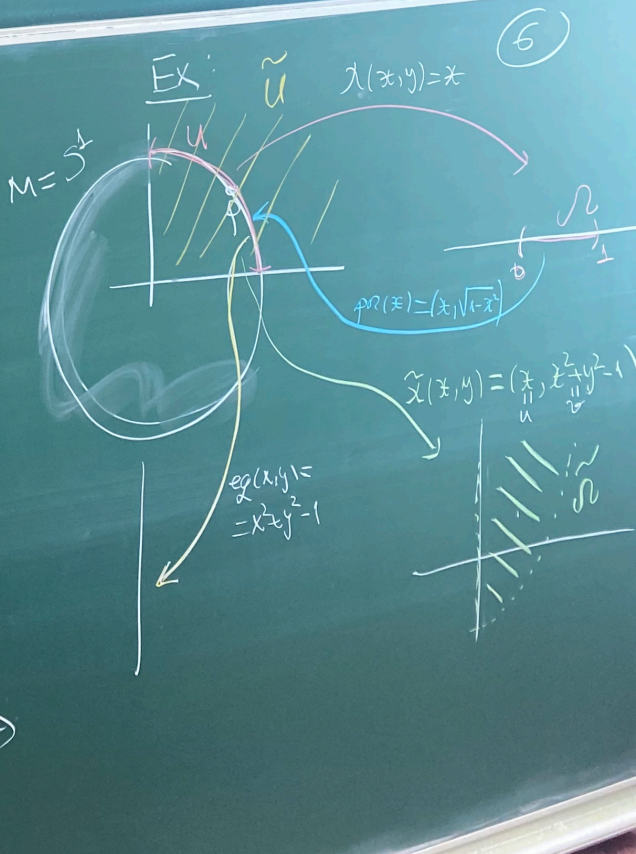 6
Ex:
ũ
x(x,y)=x
u
M=S¹
p
Ω
0
1
par(x)=(x,√1-x²)
x̃(x,y)=(x, x²+y²-1)
u
v
eq(x,y)=
=x²+y²-1
Ω̃